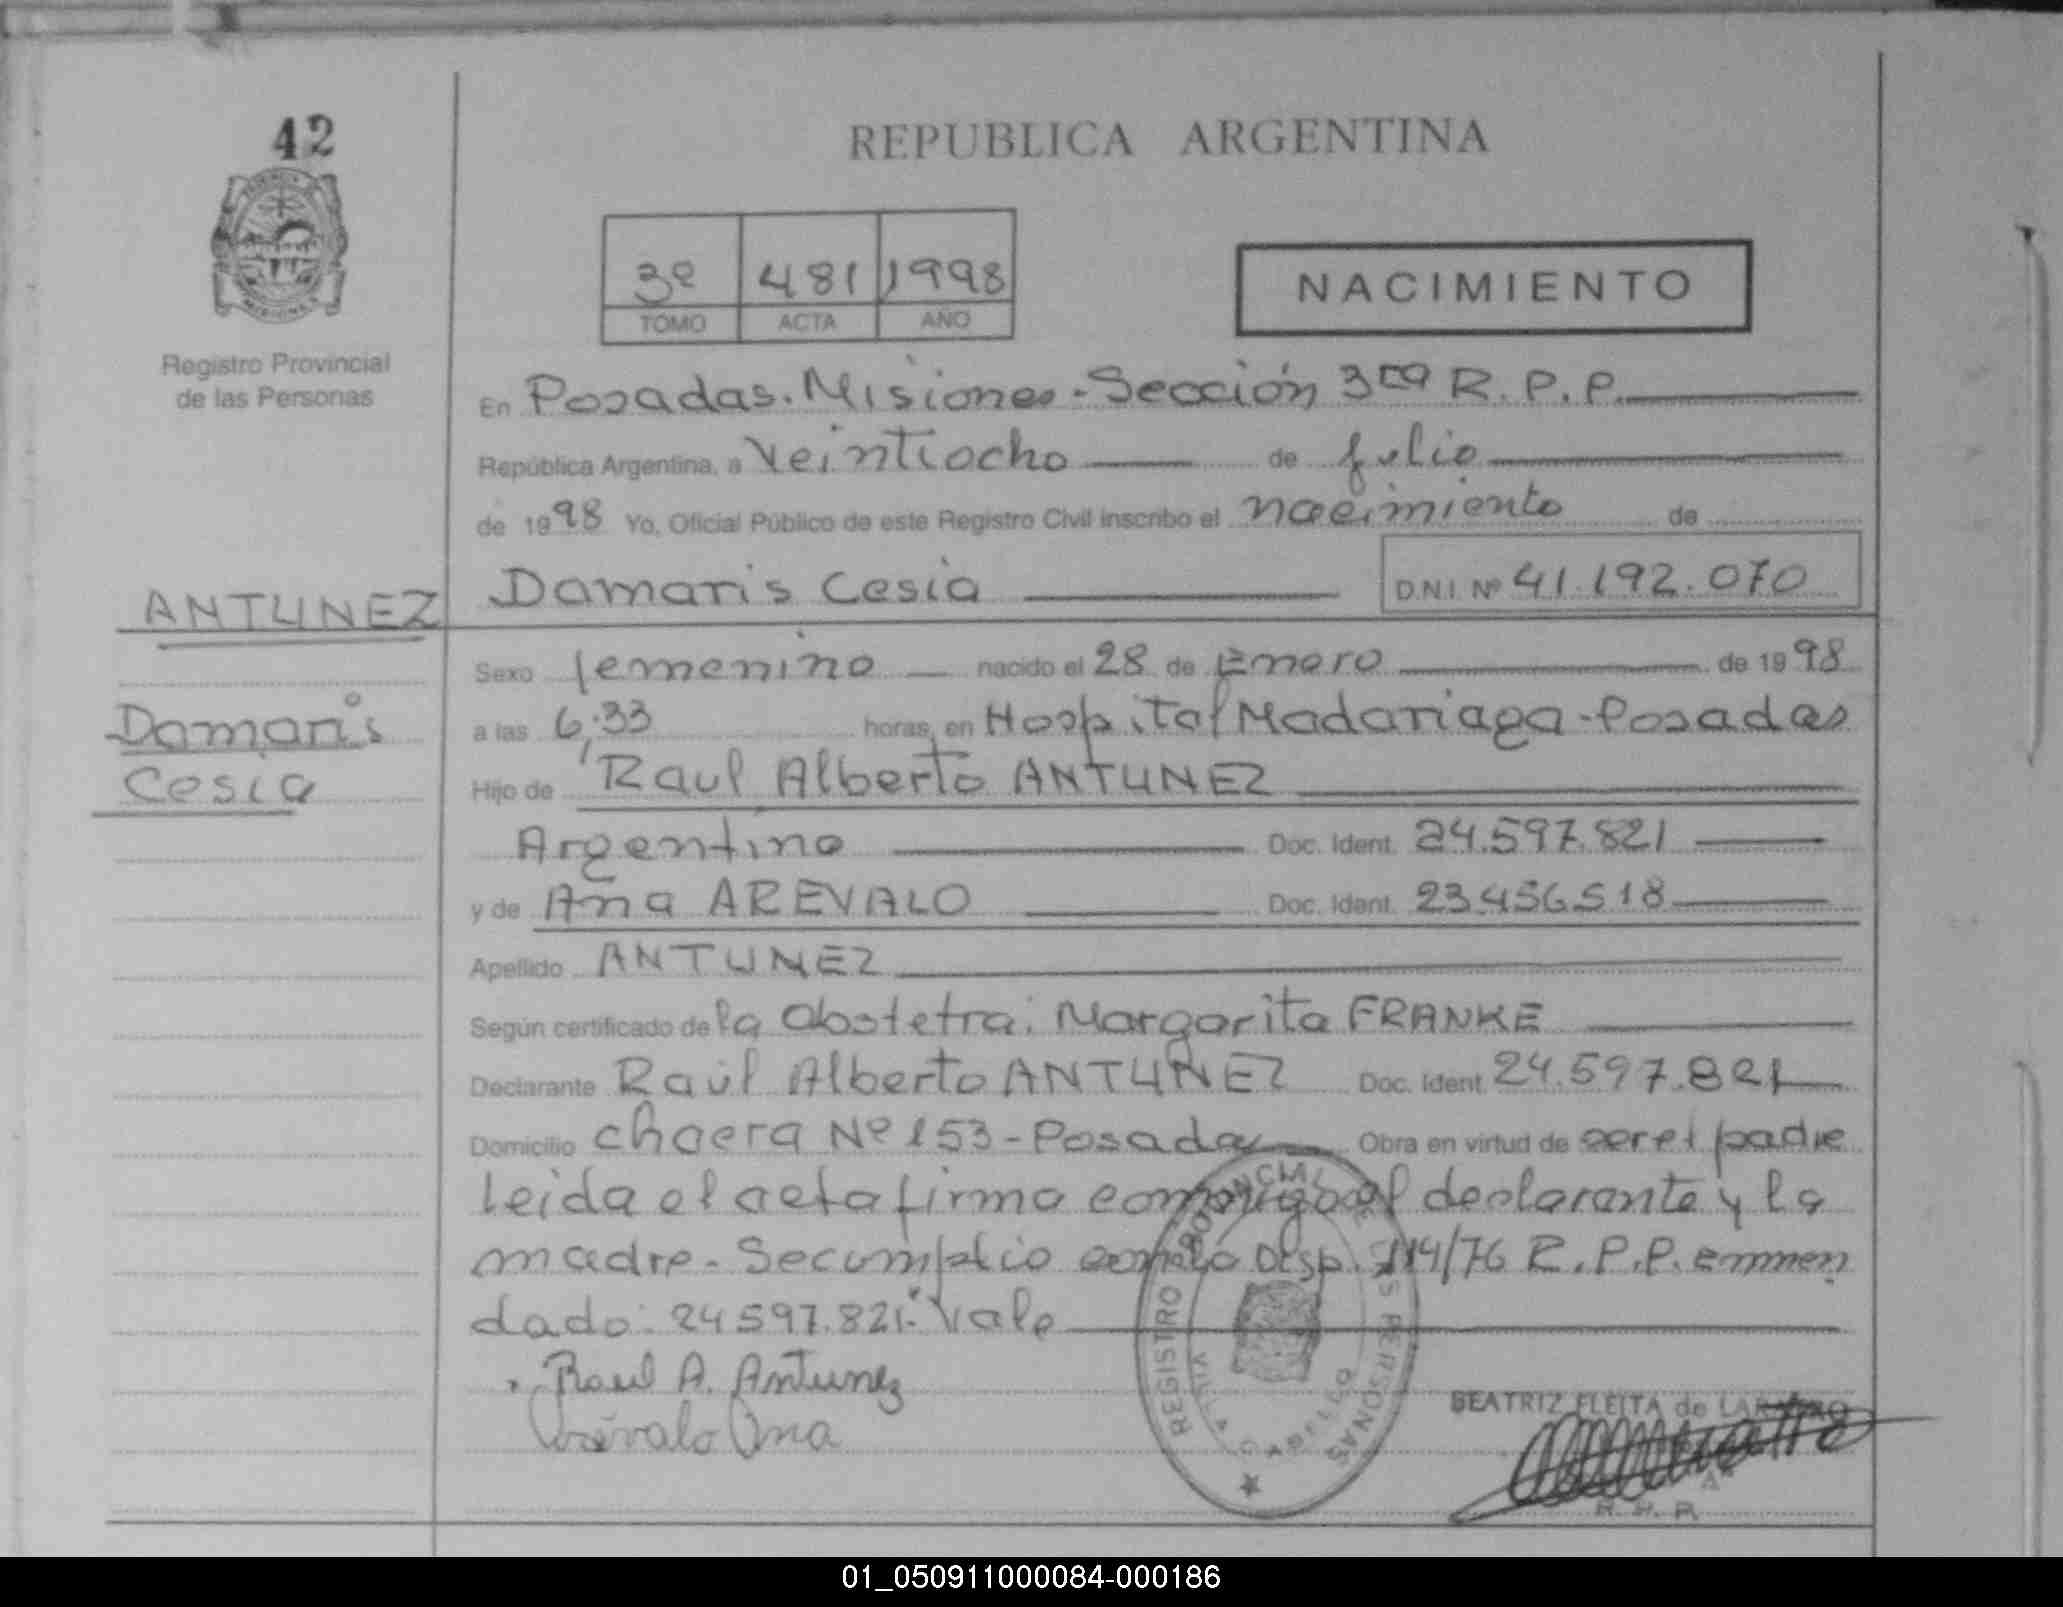 42
REPUBLICA ARGENTINA
3º 481 1998
TOMO ACTA AÑO
NACIMIENTO
Registro Provincial
de las Personas
En Posadas. Misiones - Sección 3ra R.P.P.
República Argentina, a veintiocho de julio
de 1998 Yo, Oficial Público de este Registro Civil inscribo el nacimiento de
ANTUNEZ
Damaris Cesia
Damaris Cesia D.N.I. Nº 41.192.070
Sexo femenino nacido el 28 de Enero de 1998
a las 6,33 horas, en Hospital Madariaga - Posadas
Hijo de Raul Alberto ANTUNEZ
Argentino Doc. Ident. 24.597.821
y de Ana AREVALO Doc. Ident. 23.456.518
Apellido ANTUNEZ
Según certificado de la obstetra: Margarita FRANKE
Declarante Raúl Alberto ANTUNEZ Doc. Ident. 24.597.821
Domicilio chacra Nº 153 - Posadas Obra en virtud de ser el padre
Leida el acta firma conmigo el declarante y la
madre - Se cumplió con la Disp. 114/76 R.P.P. enmen
dado: 24.597.821. Vale
Raul A. Antunez
Arévalo Ana
REGISTRO PROVINCIAL DE LAS PERSONAS
BEATRIZ FLEITA de
01_050911000084-000186